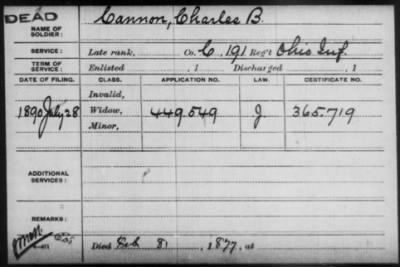 DEAD
NAME OF SOLDIER: Cannon, Charles B.
SERVICE: Late rank, Co. C, 191 Reg't Ohio Inf.
TERM OF SERVICE: Enlisted , 1 Discharged , 1
DATE OF FILING. CLASS. APPLICATION NO. LAW. CERTIFICATE NO.
Invalid,
1890 July 28 Widow, 449.549 J. 365.719
Minor,
ADDITIONAL SERVICES:
REMARKS:
Died Feb 8, 1877,